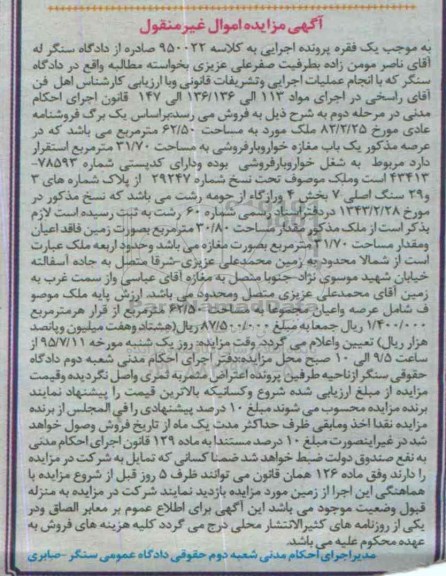 آگهی مزایده اموال غیرمنقول
به موجب یک فقره پرونده اجرایی به کلاسه ۹۵۰۰۲۲ صادره از دادگاه سنگر له
آقای ناصر مومن زاده بطرفیت صفرعلی عزیزی بخواسته مطالبه واقع در دادگاه
سنگر که با انجام عملیات اجرایی وتشریفات قانونی وبا ارزیابی کارشناس اهل فن
آقای راسخی در اجرای مواد ۱۱۳ الی ۱۳۶/۱۳۶ الی ۱۴۷ قانون اجرای احکام
مدنی در مرحله دوم به شرح ذیل به فروش می رسد:براساس یک برگ فروشنامه
عادی مورخ ۸۲/۲/۲۵ ملک مورد به مساحت ۶۲/۵۰ مترمربع می باشد که در
عرصه مذکور یک باب مغازه خواروبارفروشی به مساحت ۳۱/۷۰ مترمربع استقرار
دارد مربوط به شغل خواروبارفروشی بوده ودارای کدپستی شماره ۷۸۵۹۳-
۴۳۴۱۳ است وملک موصوف تحت نسخ شماره ۳۹۲۴۷ از پلاک شماره های ۳
و۲۹ سنگ اصلی ۷ بخش ۴ ورازگاه از حومه رشت می باشد که نسخ مذکور در
مورخ ۱۳۴۳/۲/۲۸ دردفتراسناد رسمی شماره ۶۰ رشت به ثبت رسیده است لازم
بذکر است از ملک مذکور مقدار مساحت ۳۰/۸۰ مترمربع بصورت زمین فاقد اعیان
ومقدار مساحت ۳۱/۷۰ مترمربع بصورت مغازه می باشد وحدود اربعه ملک عبارت
است از شمالا محدود به زمین محمدعلی عزیزی-شرقا متصل به جاده آسفالته
خیابان شهید موسوی نژاد-جنوبا متصل به مغازه آقای عباسی واز سمت غرب به
زمین آقای محمدعلی عزیزی متصل ومحدود می باشد. ارزش پایه ملک موصو
ف شامل عرصه واعیان مجموعا به مساحت ۶۲/۵۰ مترمربع از قرار هرمترمربع
۱/۴۰۰/۰۰۰ ریال جمعا به مبلغ ۸۷/۵۰۰/۰۰۰ ریال(هشتاد وهفت میلیون وپانصد
هزار ریال) تعیین واعلام می گردد. وقت مزایده: روز یک شنبه مورخه ۹۵/۷/۱۱ از
ساعت ۹/۵ الی ۱۰ صبح محل مزایده:دفتر اجرای احکام مدنی شعبه دوم دادگاه
حقوقی سنگر ازناحیه طرفین پرونده اعتراض مثمربه ثمری واصل نگردیده وقیمت
مزایده از مبلغ ارزیابی شده شروع وکسانیکه بالاترین قیمت را پیشنهاد نمایند
برنده مزایده محسوب می شوند مبلغ ۱۰ درصد پیشنهادی را فی المجلس از برنده
مزایده نقدا اخذ ومابقی ظرف حداکثر مدت یک ماه از تاریخ فروش وصول خواهد
شد در غیراینصورت مبلغ ۱۰ درصد مستندا به ماده ۱۲۹ قانون اجرای احکام مدنی
به نفع صندوق دولت ضبط خواهد شد ضمنا کسانی که تمایل به شرکت در مزایده
را دارند وفق ماده ۱۲۶ همان قانون می توانند ظرف ۵ روز قبل از شروع مزایده با
هماهنگی این اجرا از زمین مورد مزایده بازدید نمایند شرکت در مزایده به منزله
قبول وضعیت موجود می باشد این آگهی برای اطلاع عموم بر معابر الصاق ودر
یکی از روزنامه های کثیرالانتشار محلی درج می گردد کلیه هزینه های فروش به
عهده محکوم علیه می باشد.
مدیراجرای احکام مدنی شعبه دوم حقوقی دادگاه عمومی سنگر -صابری